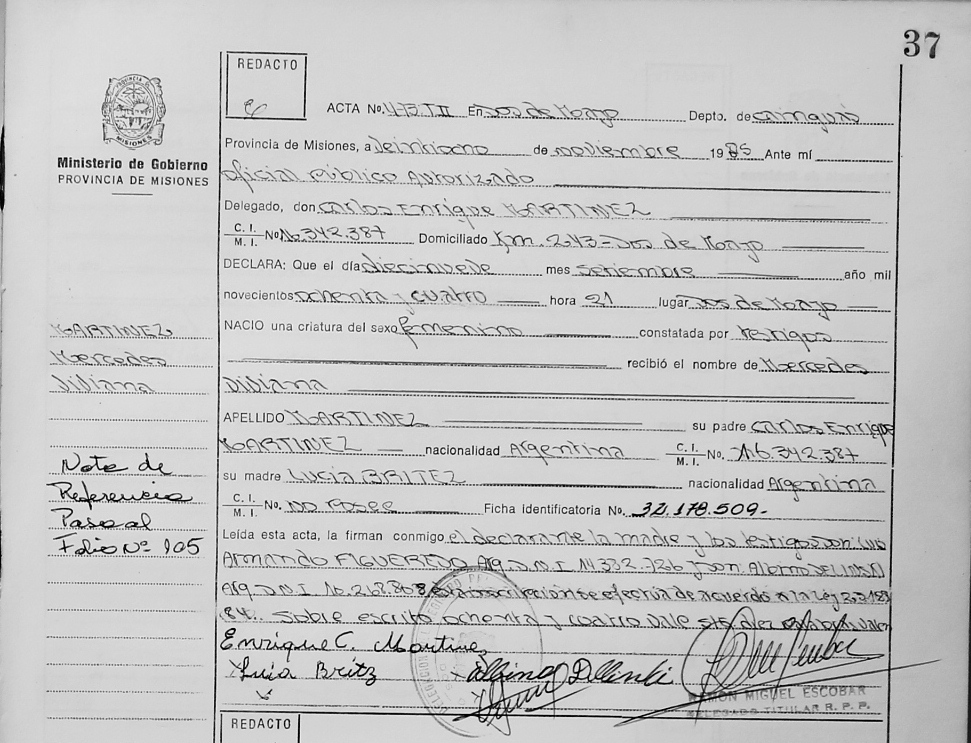 37
REDACTO
PROVINCIA DE MISIONES
Ministerio de Gobierno
PROVINCIA DE MISIONES
ACTA No. 473 T II En Dos de Mayo Depto. de Cainguás
Provincia de Misiones, a veintiocho de noviembre 1985 Ante mí
Oficial Público Autorizado
Delegado, don Carlos Enrique MARTINEZ
C. I. M. I. No 16.342.387 Domiciliado Km. 243 - Dos de Mayo
DECLARA: Que el día diecinueve mes setiembre año mil
novecientos ochenta y cuatro hora 21 lugar Dos de Mayo
NACIO una criatura del sexo femenino constatada por testigos
recibió el nombre de Mercedes
Viviana
APELLIDO MARTINEZ su padre Carlos Enrique
MARTINEZ nacionalidad Argentina C. I. M. I. No. 16.342.387
su madre Lucia BRITEZ nacionalidad Argentina
C. I. M. I. No. no posee Ficha Identificatoria No. 32.178.509.-
Leída esta acta, la firman conmigo el declarante la madre y los testigos don
Armando FIGUEREDO Arg. D.N.I. 14.332.726 y don
Arg. D.N.I. inscripción se efectúa de acuerdo a la Ley
84.. Sobre escrito ochenta y cuatro vale
Enrique C. Martinez
Lucia Britz
RAMON MIGUEL ESCOBAR
DELEGADO TITULAR R. P. P.
MARTINEZ
Mercedes
Viviana
Nota de
Referencia
Pasa al
Folio Nº 105
REDACTO